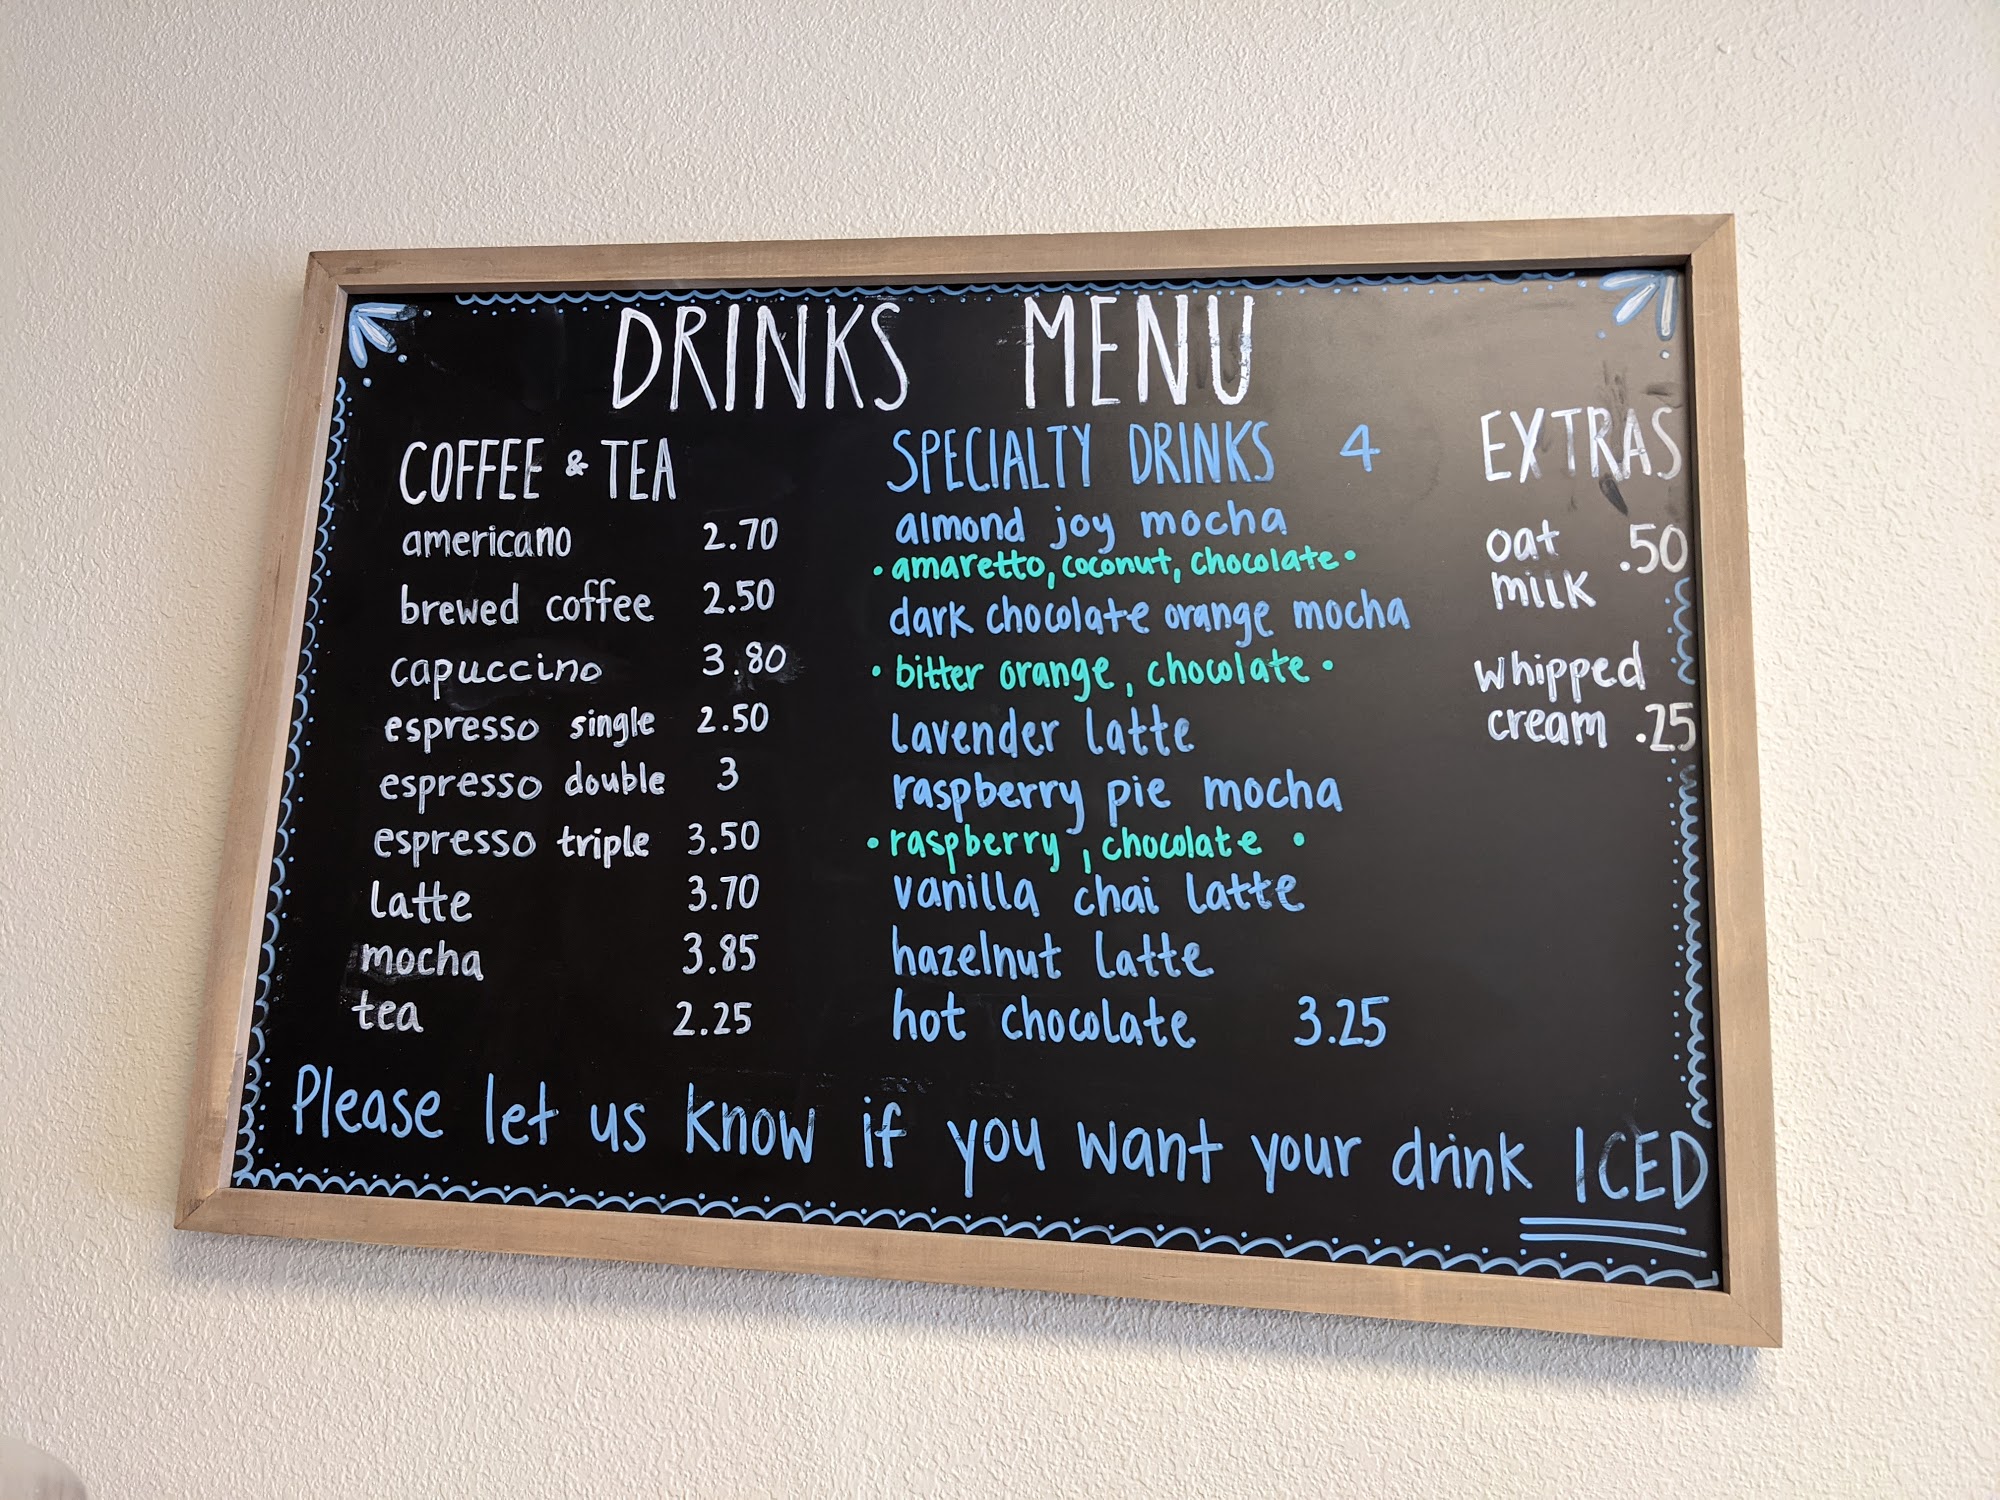 DRINKS MENU
COFFEE & TEA
americano 2.70
brewed coffee 2.50
capuccino 3.80
espresso single 2.50
espresso double 3
espresso triple 3.50
latte 3.70
mocha 3.85
tea 2.25
SPECIALTY DRINKS 4
almond joy mocha
• amaretto, coconut, chocolate •
dark chocolate orange mocha
• bitter orange, chocolate •
lavender latte
raspberry pie mocha
• raspberry, chocolate •
vanilla chai latte
hazelnut latte
hot chocolate 3.25
EXTRAS
oat .50
milk
whipped
cream .25
Please let us know if you want your drink ICED